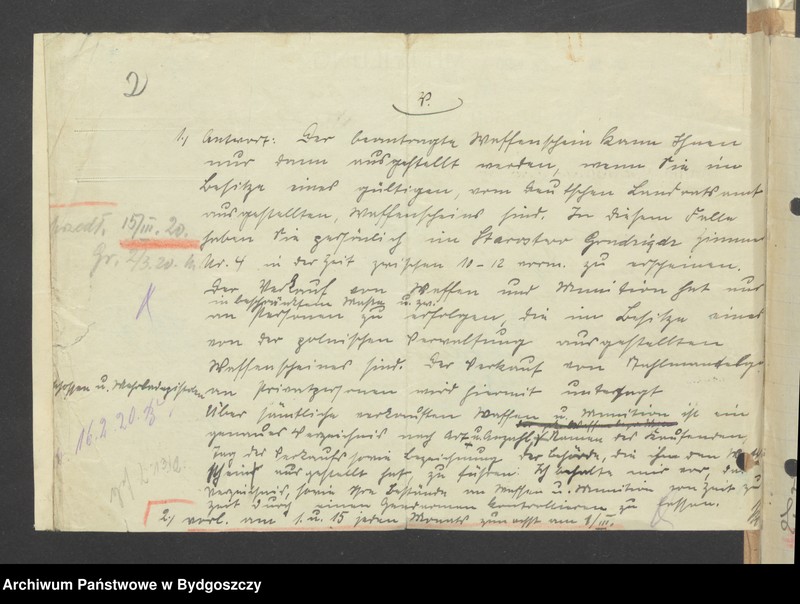 2
V.
1.) Antwort: Der beantragte Waffenschein kann Ihnen
nur dann ausgestellt werden, wenn Sie im
Besitze eines gültigen, vom deutschen Landratsamt
ausgestellten, Waffenscheins sind. In diesem Falle
haben Sie persönlich im Starostwo Grudziądz Zimmer
Nr. 4 in der Zeit zwischen 10-12 vorm. zu erscheinen.
Der Verkauf von Waffen und Munition hat nur
in beschränktem Maße u. zwar
an Personen zu erfolgen, die im Besitze eines
von der polnischen Verwaltung ausgestellten
Waffenscheines sind. Der Verkauf von Stahlmantelge-
schossen u. Mehrladepistolen an Privatpersonen wird hiermit untersagt
Über sämtliche verkauften Waffen u. Munition ist ein
genaues Verzeichnis nach Art u. Anzahl, Namen des Kaufenden,
Tag des Verkaufs sowie Bezeichnung der Behörde, die ihm den Waffen-
schein ausgestellt hat, zu führen. Ich behalte mir vor, das
Verzeichnis, sowie Ihre Bestände an Waffen u. Munition von Zeit zu
Zeit durch einen Gendarmen kontrollieren zu lassen.
2.) vorl. am 1. u. 15 jeden Monats zunächst am 1/III.
15/III. 20.
Gr. 2/3.20.
16.2.20.
Archiwum Państwowe w Bydgoszczy